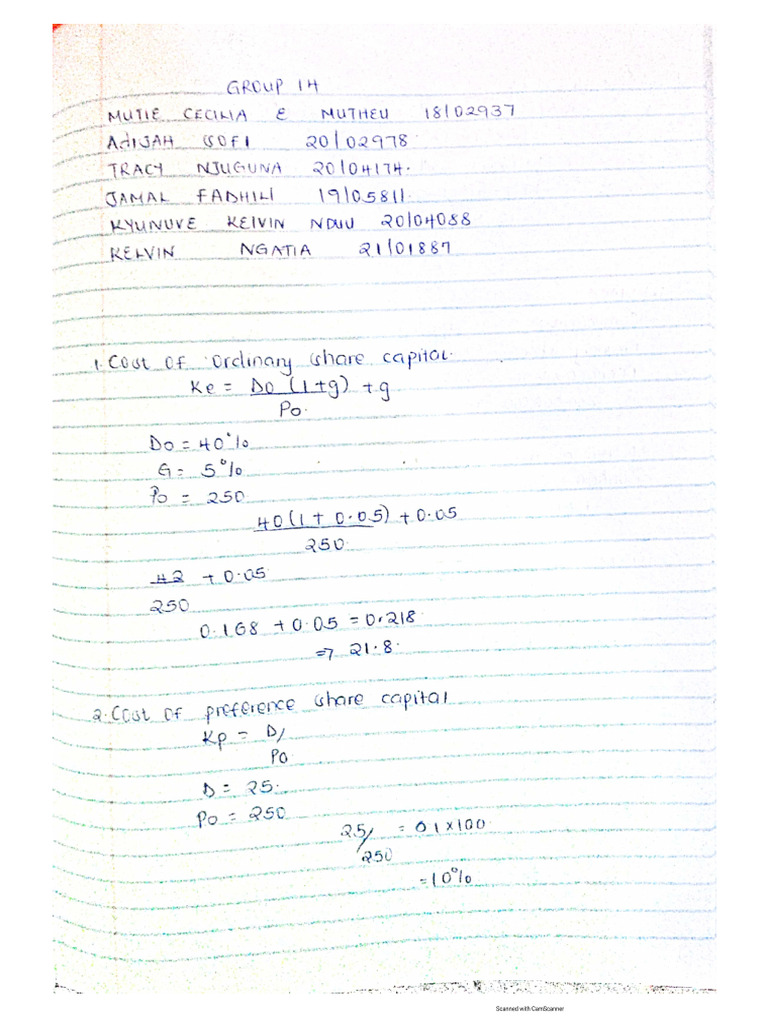 GROUP 14
MUTIE CECILIA E MUTHEU 18/02937
AdIJAH SOFI 20/02978
TRACY NJUGUNA 20/04174.
JAMAL FADHILI 19/05811.
KYUNUVE KELVIN NDUU 20/04088
KELVIN NGATIA 21/01887
1. Cost of ordinary share capital.
Ke = Do (1+g) + g
Po.
Do = 40%
G = 5%
Po = 250
40(1 + 0.05) + 0.05
250.
42 + 0.05
250
0.168 + 0.05 = 0.218
=> 21.8.
2. Cost of prefference share capital
Kp = D/
Po
D = 25.
Po = 250
25/ = 0.1 x 100.
250
= 10%
Scanned with CamScanner